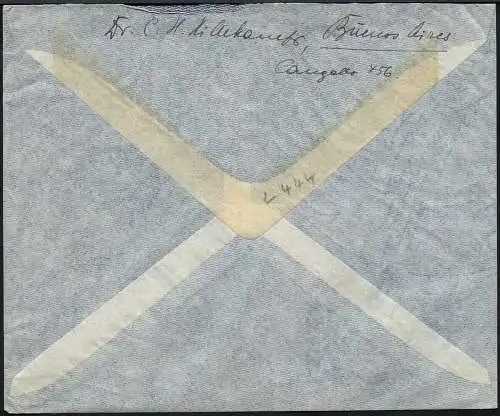 Dr. C. H. Buenos Aires
Cangallo 456
L 444